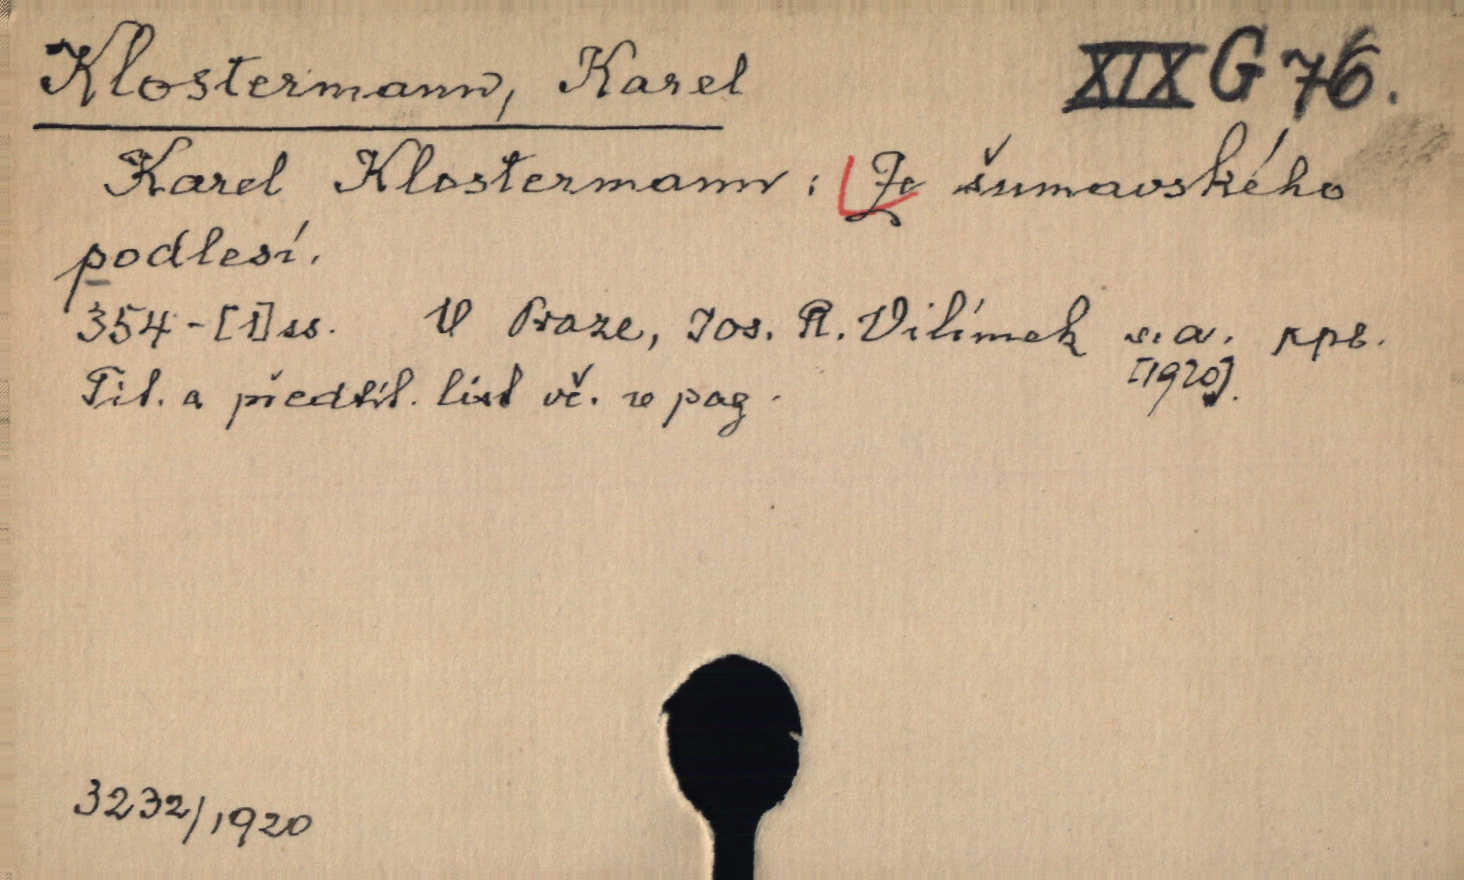 Klostermann, Karel XIX G 76.
Karel Klostermann: Ze šumavského
podlesí.
354-[1] ss. V Praze, Jos. R. Vilímek s. a. pp8.
[1920].
Tit. a předsíl. list vč. v pag.
3232/1920